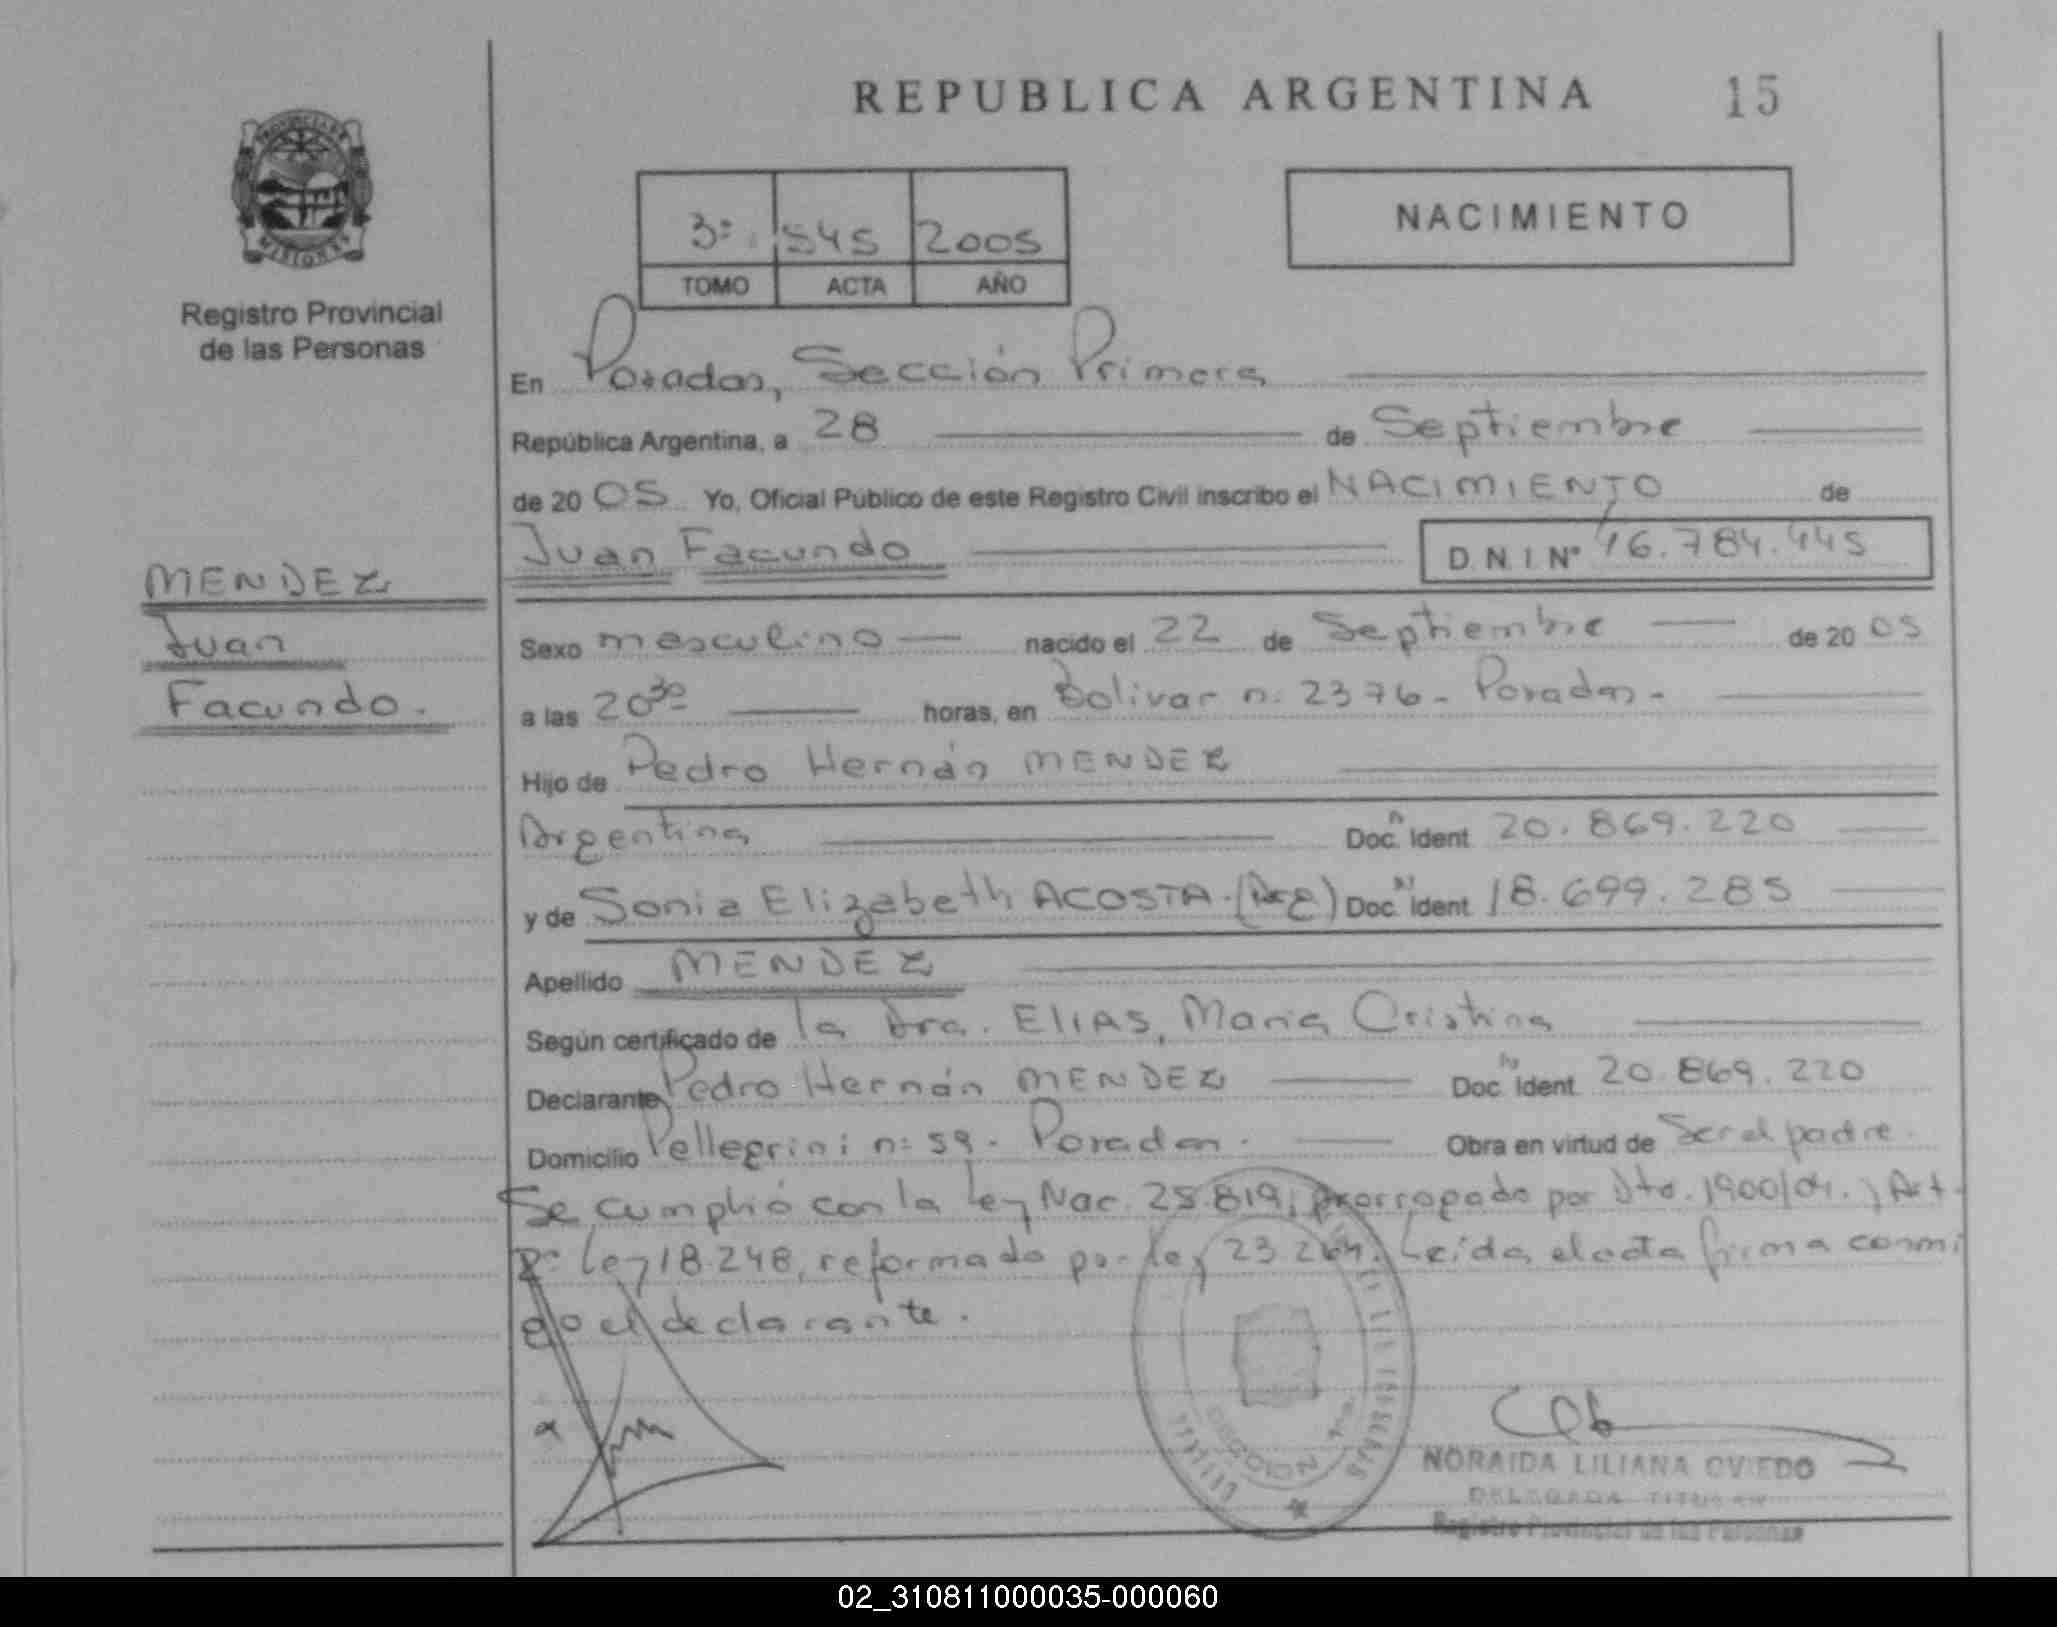 REPUBLICA ARGENTINA 15
PROVINCIA DE
MISIONES
Registro Provincial
de las Personas
3º 545 2005
TOMO ACTA AÑO
NACIMIENTO
En Posadas, Sección Primera
República Argentina, a 28 de Septiembre
de 20 05 Yo, Oficial Público de este Registro Civil inscribo el NACIMIENTO de
Juan Facundo D.N.I. Nº 46.784.445
MENDEZ
Juan
Facundo.
Sexo masculino nacido el 22 de Septiembre de 20 05
a las 20 30 horas, en Bolivar nº 2376 - Posadas -
Hijo de Pedro Hernán MENDEZ
Argentina Doc. Ident. 20.869.220
y de Sonia Elizabeth ACOSTA. (Arg) Doc. Ident. 18.699.285
Apellido MENDEZ
Según certificado de la Dra. ELIAS, Maria Cristina
Declarante Pedro Hernán MENDEZ Doc. Ident. 20.869.220
Domicilio Pellegrini nº 59. Posadas. Obra en virtud de Ser el padre.
Se cumplió con la Ley Nac. 25.819, prorrogado por Dto. 1900/04., Art.
2º Ley 18.248, reformado por ley 23.264. Leída el acta firma conmi
go el declarante.
NORAIDA LILIANA OVIEDO
DELEGADA TITULAR
Registro Provincial de las Personas
02_310811000035-000060